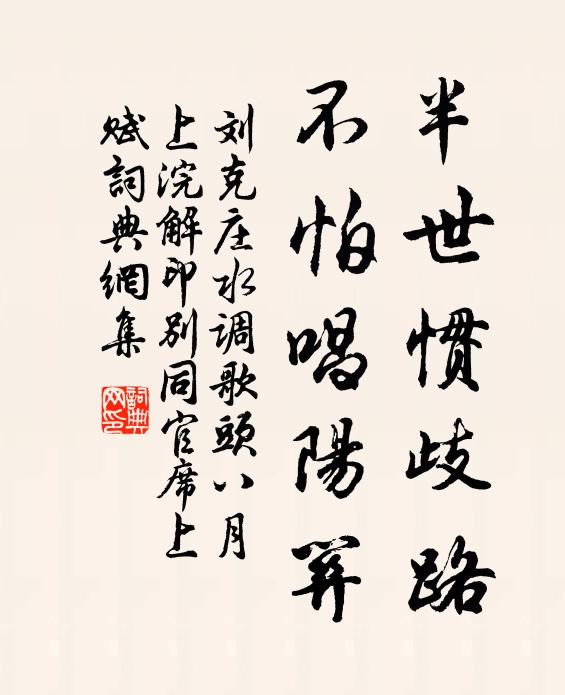 半世惯歧路
不怕唱陽關
刘克庄水调歌頭八月
上浣解印别同官席上
赋詞典網集
詞典
网印